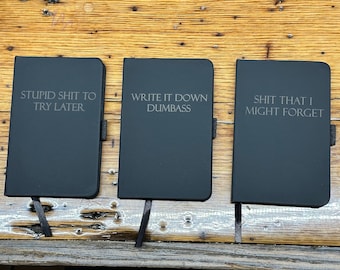 STUPID SHIT TO
TRY LATER
WRITE IT DOWN
DUMBASS
SHIT THAT I
MIGHT FORGET